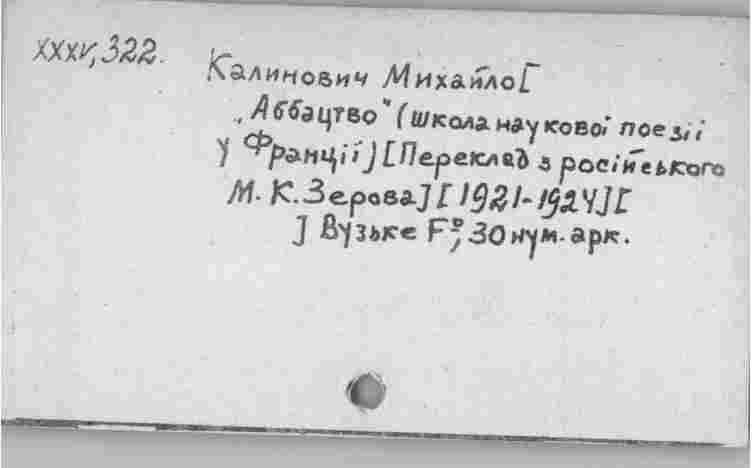 XXXV, 322.
Калинович Михайло [
„Аббацтво" (школа наукової поезії
у Франції) [Переклад з російського
М. К. Зерова] [1921-1924] [
] Вузьке F°, 30 нум. арк.